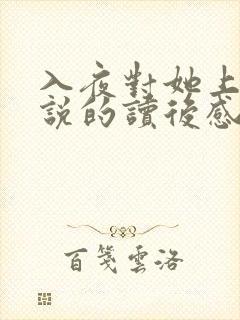 入夜對她上
說的讀後感
百箋雲洛